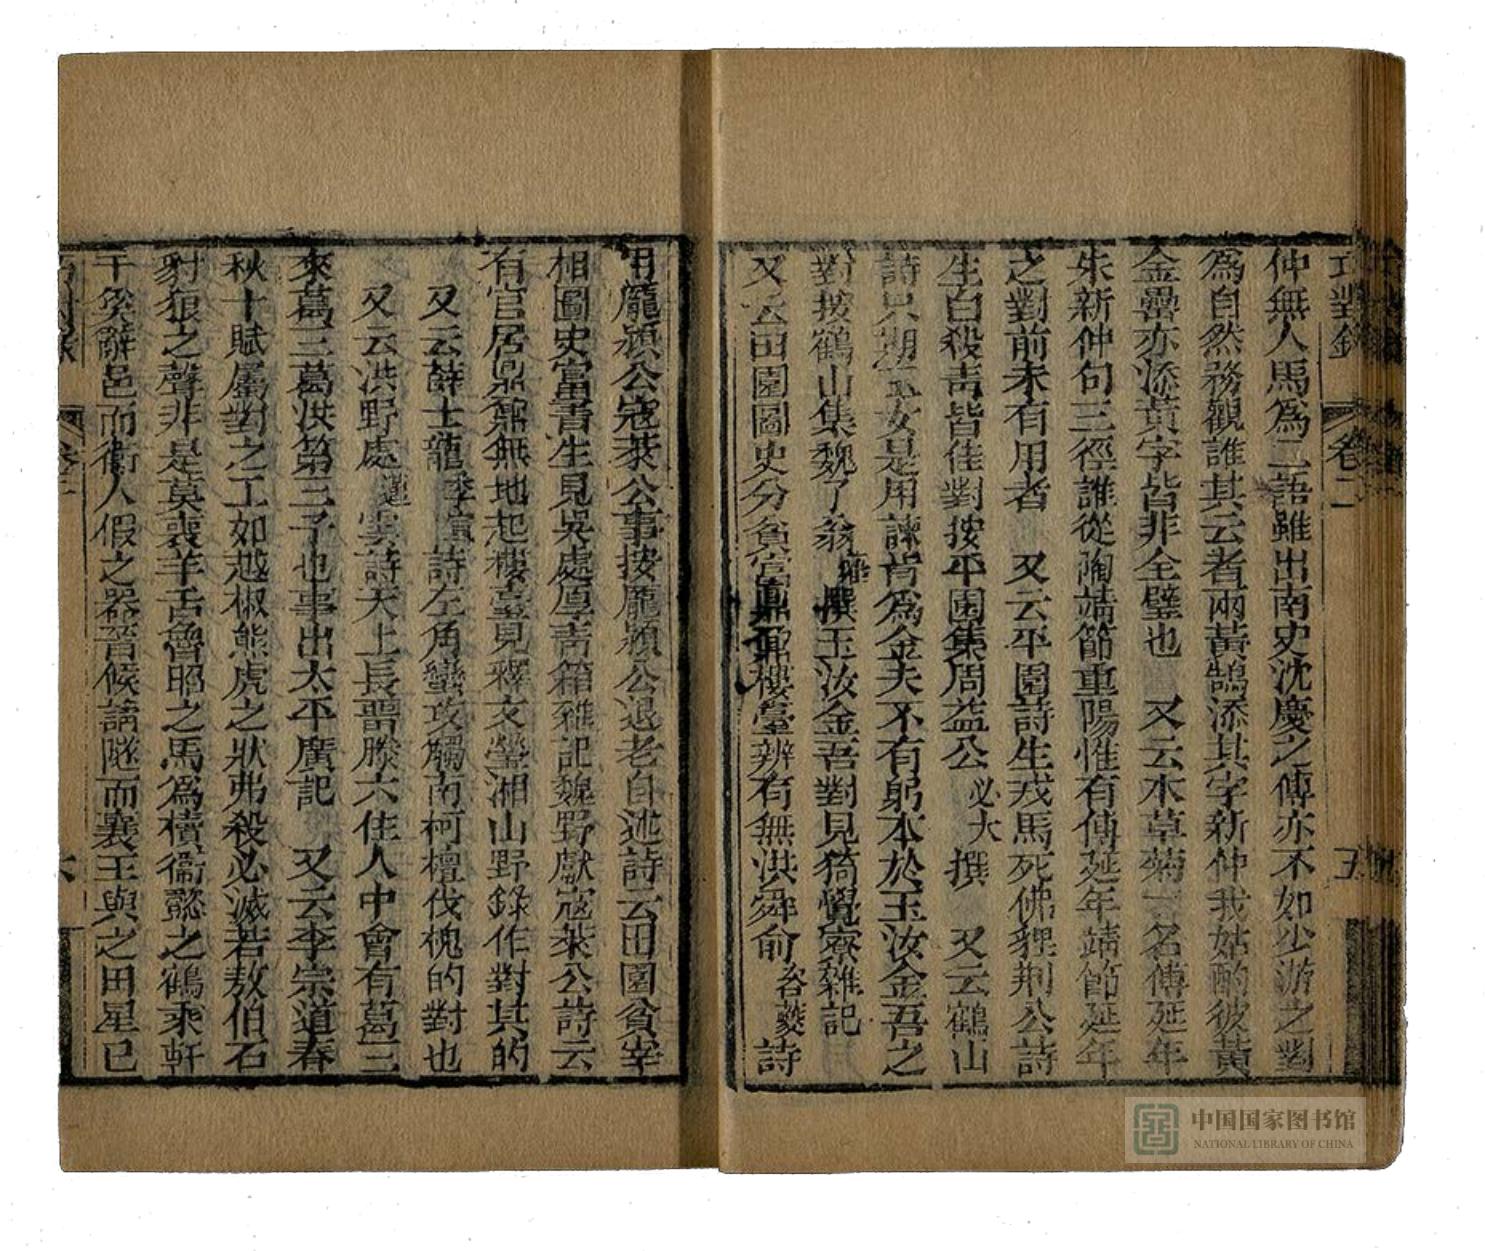 巧對錄 卷二 五
仲無人馬爲二語雖出南史沈慶之傳亦不如少游之對
爲自然務觀誰其云者兩黃鵠添其字新仲我姑酌彼黃
金罍亦添黃字皆非全璧也 又云本草菊一名傅延年
朱新仲句三徑誰從陶靖節重陽惟有傅延年靖節延年
之對前未有用者 又云平園詩生戎馬死佛貍荆公詩
生白殺青皆佳對按平園集周益公必大撰 又云鶴山
詩只期玉女是用諫肯爲金夫不有躬本於玉汝金吾之
對按鶴山集魏了翁撰玉汝金吾對見猗覺寮雜記
又云田園圖史分貧富鼎鼐樓臺辨有無洪舜俞咨夔詩
用龐潁公寇萊公事按龐潁公退老自述詩云田園貧宰
相圖史富書生見吳處厚青箱雜記魏野獻寇萊公詩云
有官居鼎鼐無地起樓臺見釋文瑩湘山野錄作對其的
又云薛士龍季宣詩左角蠻攻觸南柯檀伐槐的對也
又云洪野處邁雲詩天上長留滕六住人中會有葛三
來葛三葛洪第三子也事出太平廣記 又云李宗道春
秋十賦屬對之工如越椒熊虎之狀弗殺必滅若敖伯石
豺狼之聲非是莫喪羊舌魯昭之馬爲櫝衞懿之鶴乘軒
于奚辭邑而衞人假之器晉侯請隧而襄王與之田星已
巧對錄 六
中国国家图书馆
NATIONAL LIBRARY OF CHINA